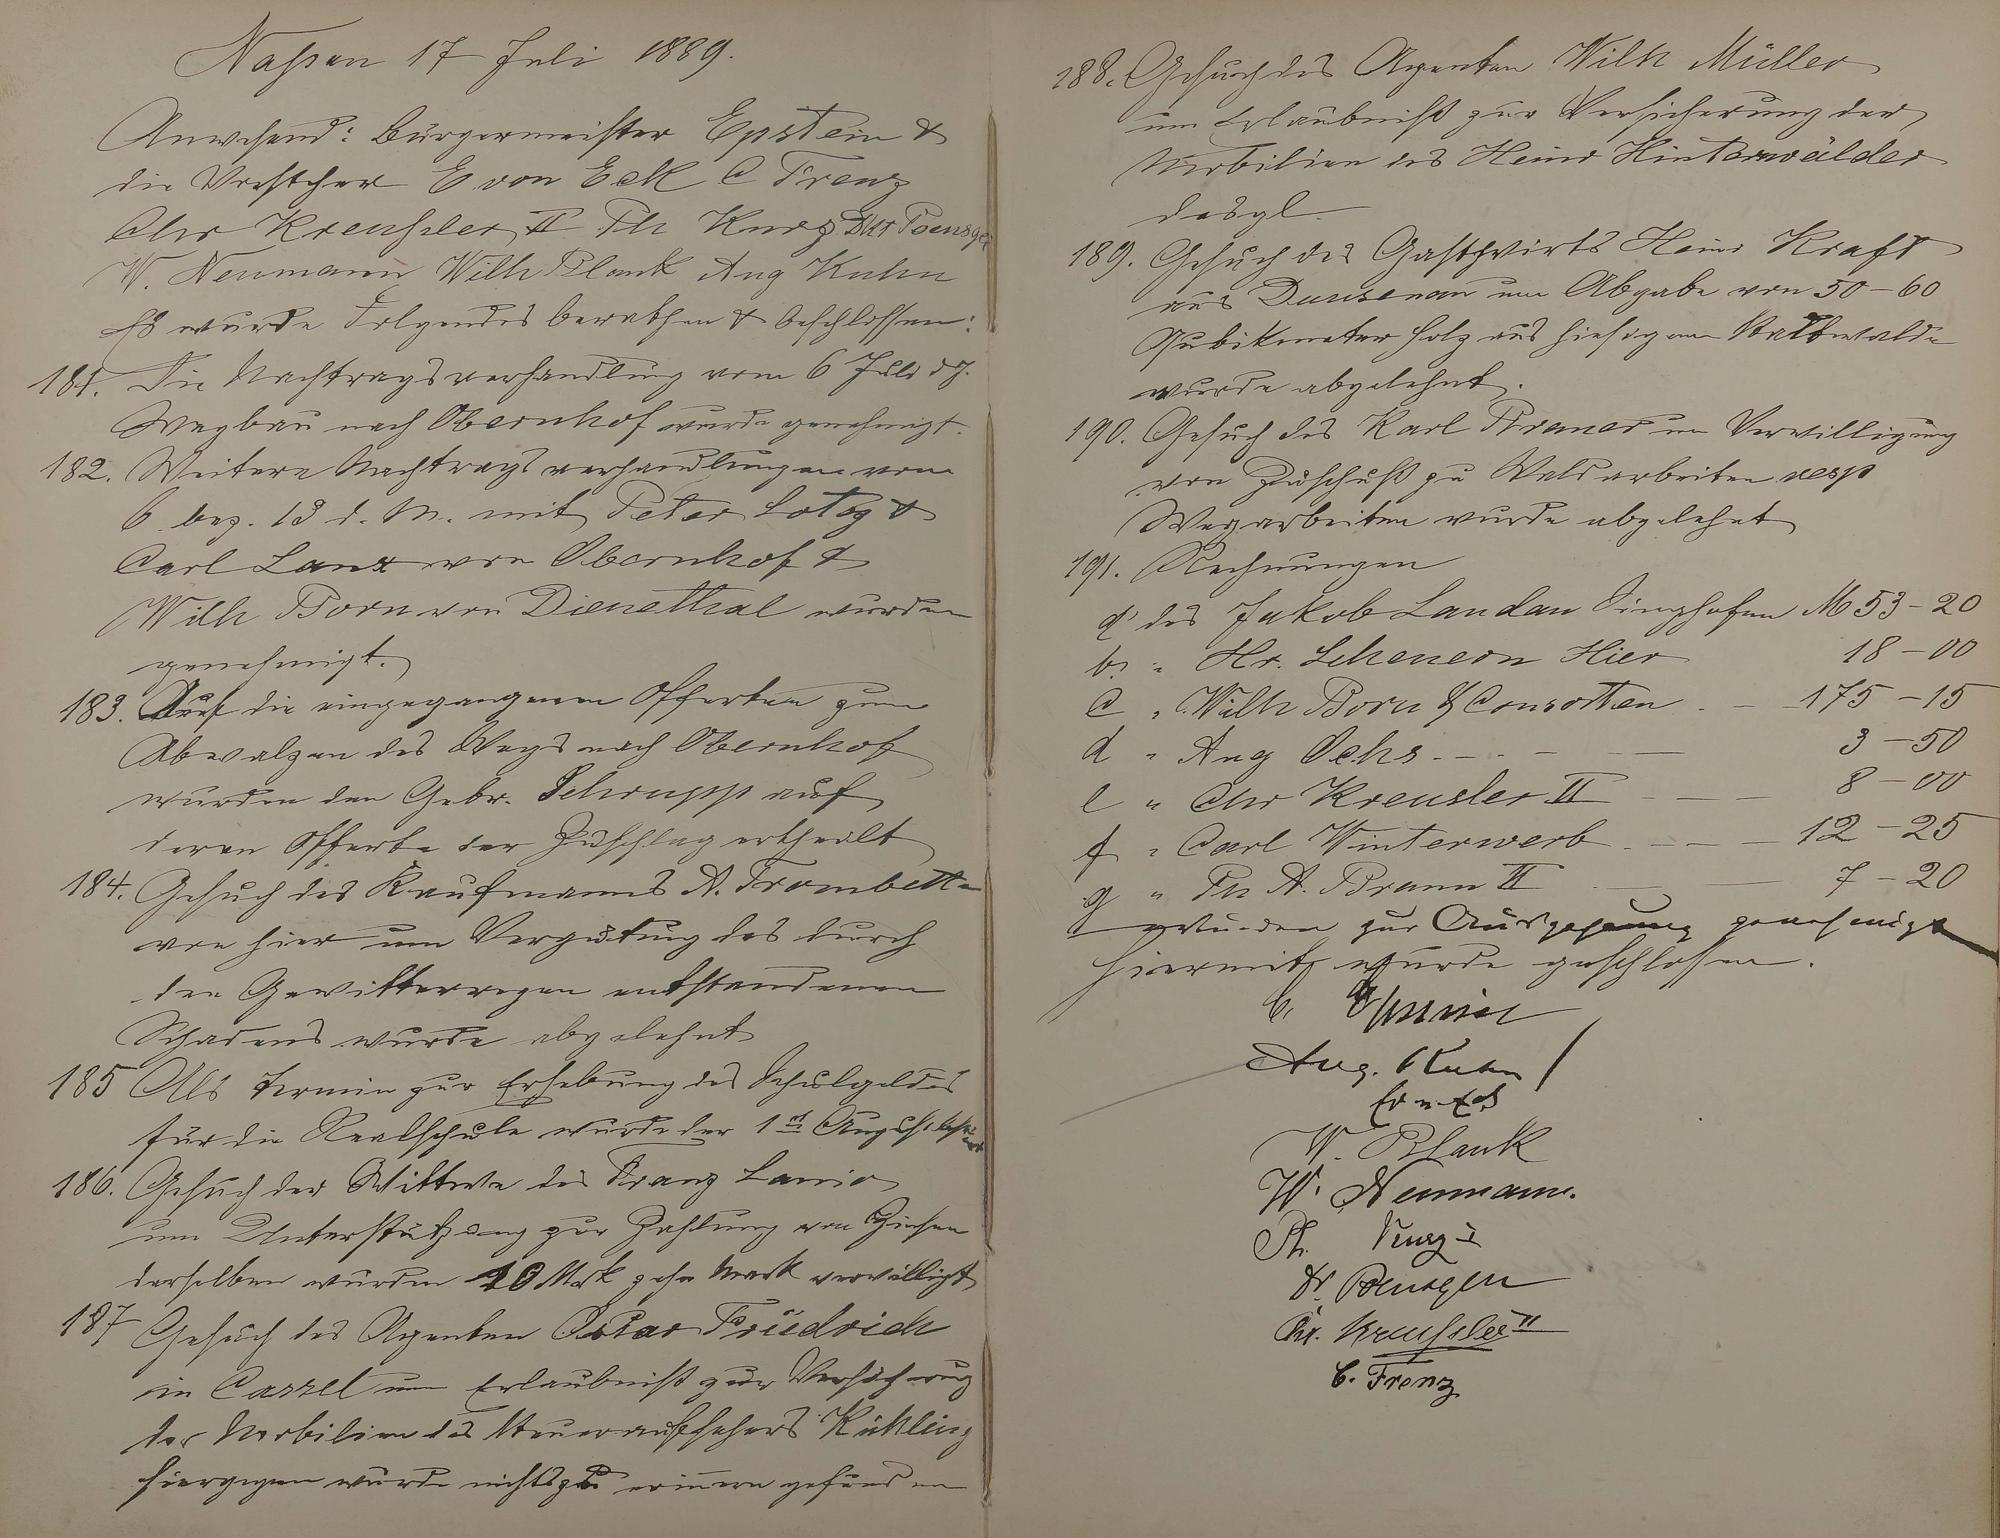 Nassau 17 Juli 1889.
Anwesend: Bürgermeister Epstein &
die Vorsteher E von Eck C Frenz
Chr Kreussler II Ph Kurz Dkt Poensgen
W. Neumann Wilh Blank Aug Kuhn
Es wurde Folgendes berathen & beschlossen:
181. Die Nachtragsverhandlung vom 6 Juli d J.
Wegbau nach Obernhof wurde genehmigt.
182. Weitere Nachtragsverhandlungen vom
6 bez. 13 d. M. mit Peter Lotz &
Carl Lanx von Obernhof &
Wilh Born von Dienethal wurden
genehmigt.
183. Auf die eingegangenen Offerten zum
Abwalzen des Wegs nach Obernhof
wurden den Gebr. Schrupp auf
deren Offerte der Zuschlag ertheilt
184. Gesuch des Kaufmanns A. Trombetta
von hier um Vergütung des durch
den Gewitterregen entstandenen
Schadens wurde abgelehnt
185 Als Termin zur Erhebung des Schulgeldes
für die Realschule wurde der 1st August bestimmt
186. Gesuch der Wittwe des Franz Lanio
um Unterstützung zur Zahlung von Zinsen
derselben wurden 10 Mrk zehn Mark verwilligt
187 Gesuch des Agenten Oskar Friedrich
in Cassel um Erlaubniß zur Versicherung
der Mobilien des Steueraufsehers Kühling
hiergegen wurde nichts zu erinnern gefunden
188. Gesuch des Agenten Wilh Müller
um Erlaubniß zur Versicherung der
Mobilien des Heinr Hinterwälder
desgl.
189. Gesuch des Gastwirts Heinr Kraft
aus Dausenau um Abgabe von 50-60
Qubikmeter Holz aus hiesigem Stadtwalde
wurde abgelehnt.
190. Gesuch des Karl Bramer um Verwilligung
von Zuschuß zu Waldarbeiten resp
Wegarbeiten wurde abgelehnt
191. Rechnungen
a des Jakob Landau Singhofen M 53-20
b. " Hr. Scheuern Hier 18-00
c " Wilh Born & Consorten - - 175-15
d " Aug Ochs - - - - 3-50
e " Chr Kreusler II - - - 8-00
f " Carl Winterwerb - - - - 12-25
g " Ph A. Braun II - - 7-20
wurden zur Ausgehung genehmigt
Hiermit wurde geschlossen.
Aug. Kuhn
E v Eck
W. Blank
W. Neumann.
Ph. Kurz
Dr. Poensgen
Chr. Kreussler II
C. Frenz